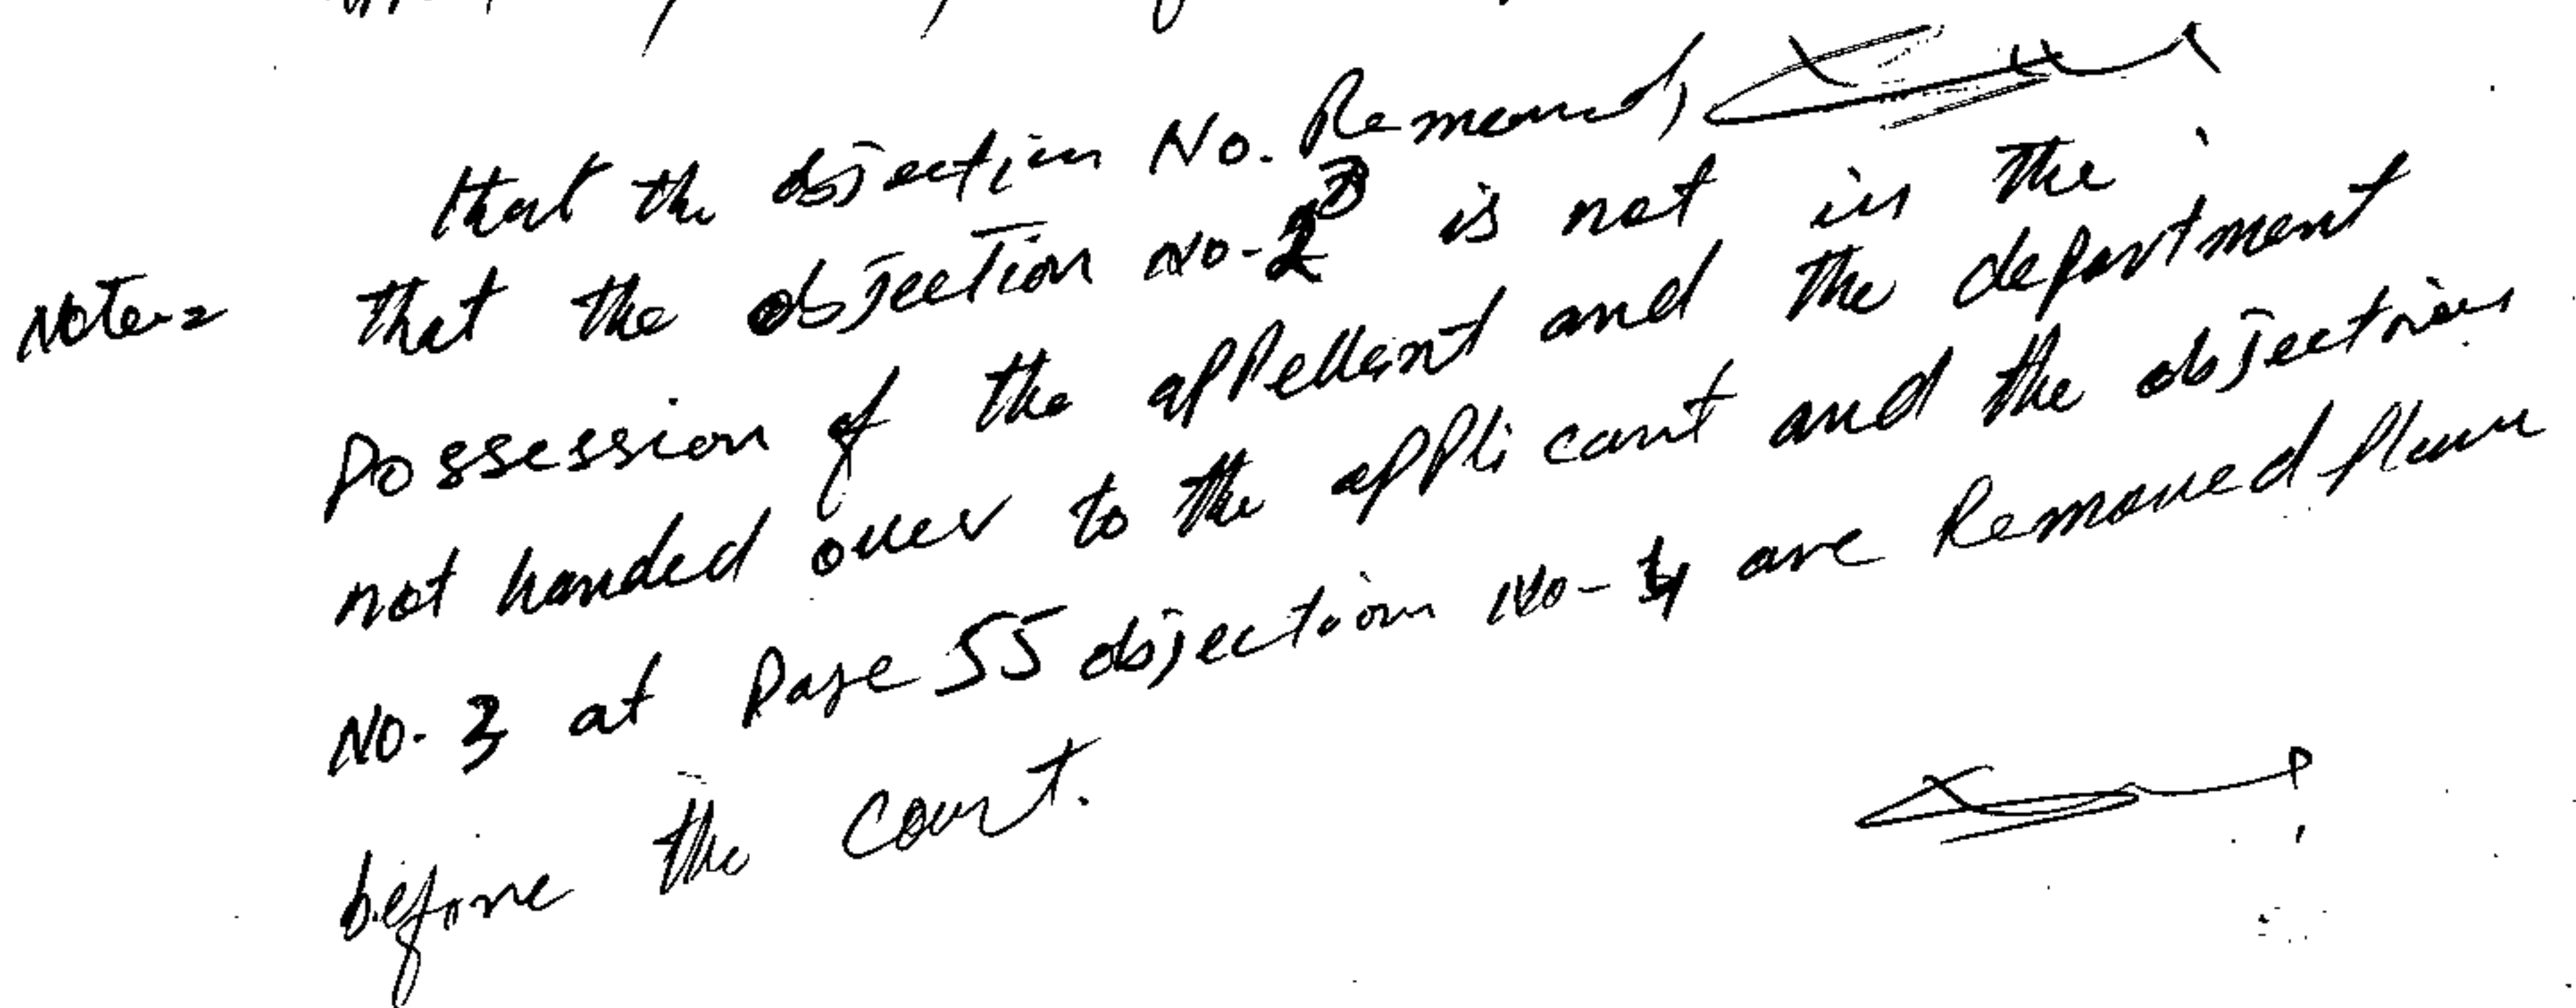 that the objection No. Removed,
Note:= that the objection No-2 is not in the
Possession of the appellant and the department
not handed over to the applicant and the objections
No. 3 at Page 55 objection No-4 are Removed
before the court.